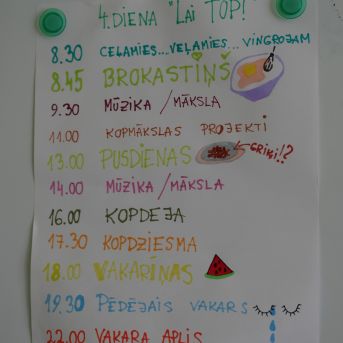 4.DIENA "LAI TOP!"
8.30 CEĻAMIES...VEĻAMIES...VINGROJAM
8.45 BROKASTIŅŠ
9.30 MŪZIKA/MĀKSLA
11.00 KOPMĀKSLAS PROJEKTI
13.00 PUSDIENAS GRIĶI!?
14.00 MŪZIKA/MĀKSLA
16.00 KOPDEJA
17.30 KOPDZIESMA
18.00 VAKARIŅAS
19.30 PĒDĒJAIS VAKARS
22.00 VAKARA APLIS